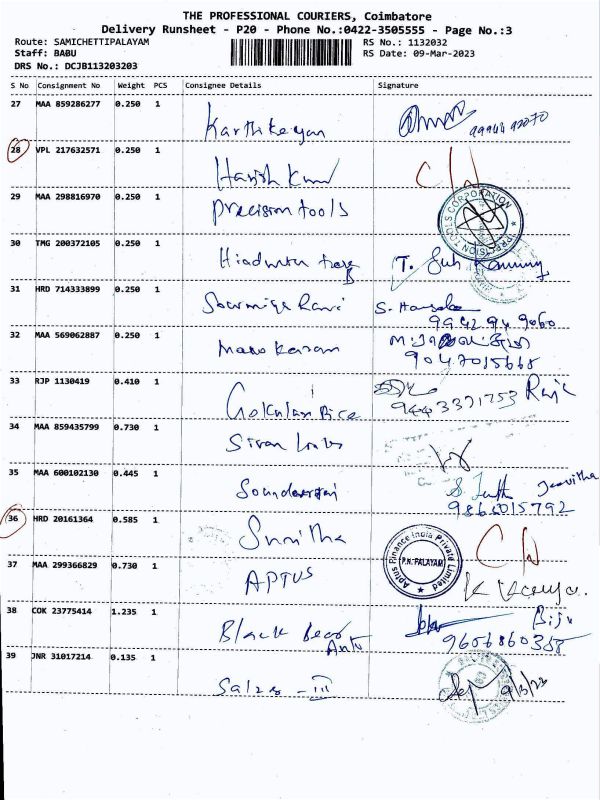 THE PROFESSIONAL COURIERS, Coimbatore
Delivery Runsheet - P20 - Phone No.:0422-3505555 - Page No.:3
Route: SAMICHETTIPALAYAM
RS No.: 1132032
Staff: BABU
RS Date: 09-Mar-2023
DRS No.: DCJB113203203
S No Consignment No Weight PCS Consignee Details Signature
27 MAA 859286277 0.250 1 Karthikeyan
28 VPL 217632571 0.250 1 Harish Kumar CW
29 MAA 298816970 0.250 1 Precision tools
PRECISION TOOLS CORPORATION
30 TMG 200372105 0.250 1
31 HRD 714333899 0.250 1
9942949060
32 MAA 569062887 0.250 1 Manokaran
9047015668
33 RJP 1130419 0.410 1 Gokulam Rice
9443371753
34 MAA 859435799 0.730 1
35 MAA 600102130 0.445 1
9866015792
36 HRD 20161364 0.585 1 Sunitha CW
37 MAA 299366829 0.730 1 APTUS
Aptus Finance India Private Limited
P.N. PALAYAM
38 COK 23775414 1.235 1 Black Bear Biju
9656860358
39 JNR 31017214 0.135 1 Salzer - III 9/3/23